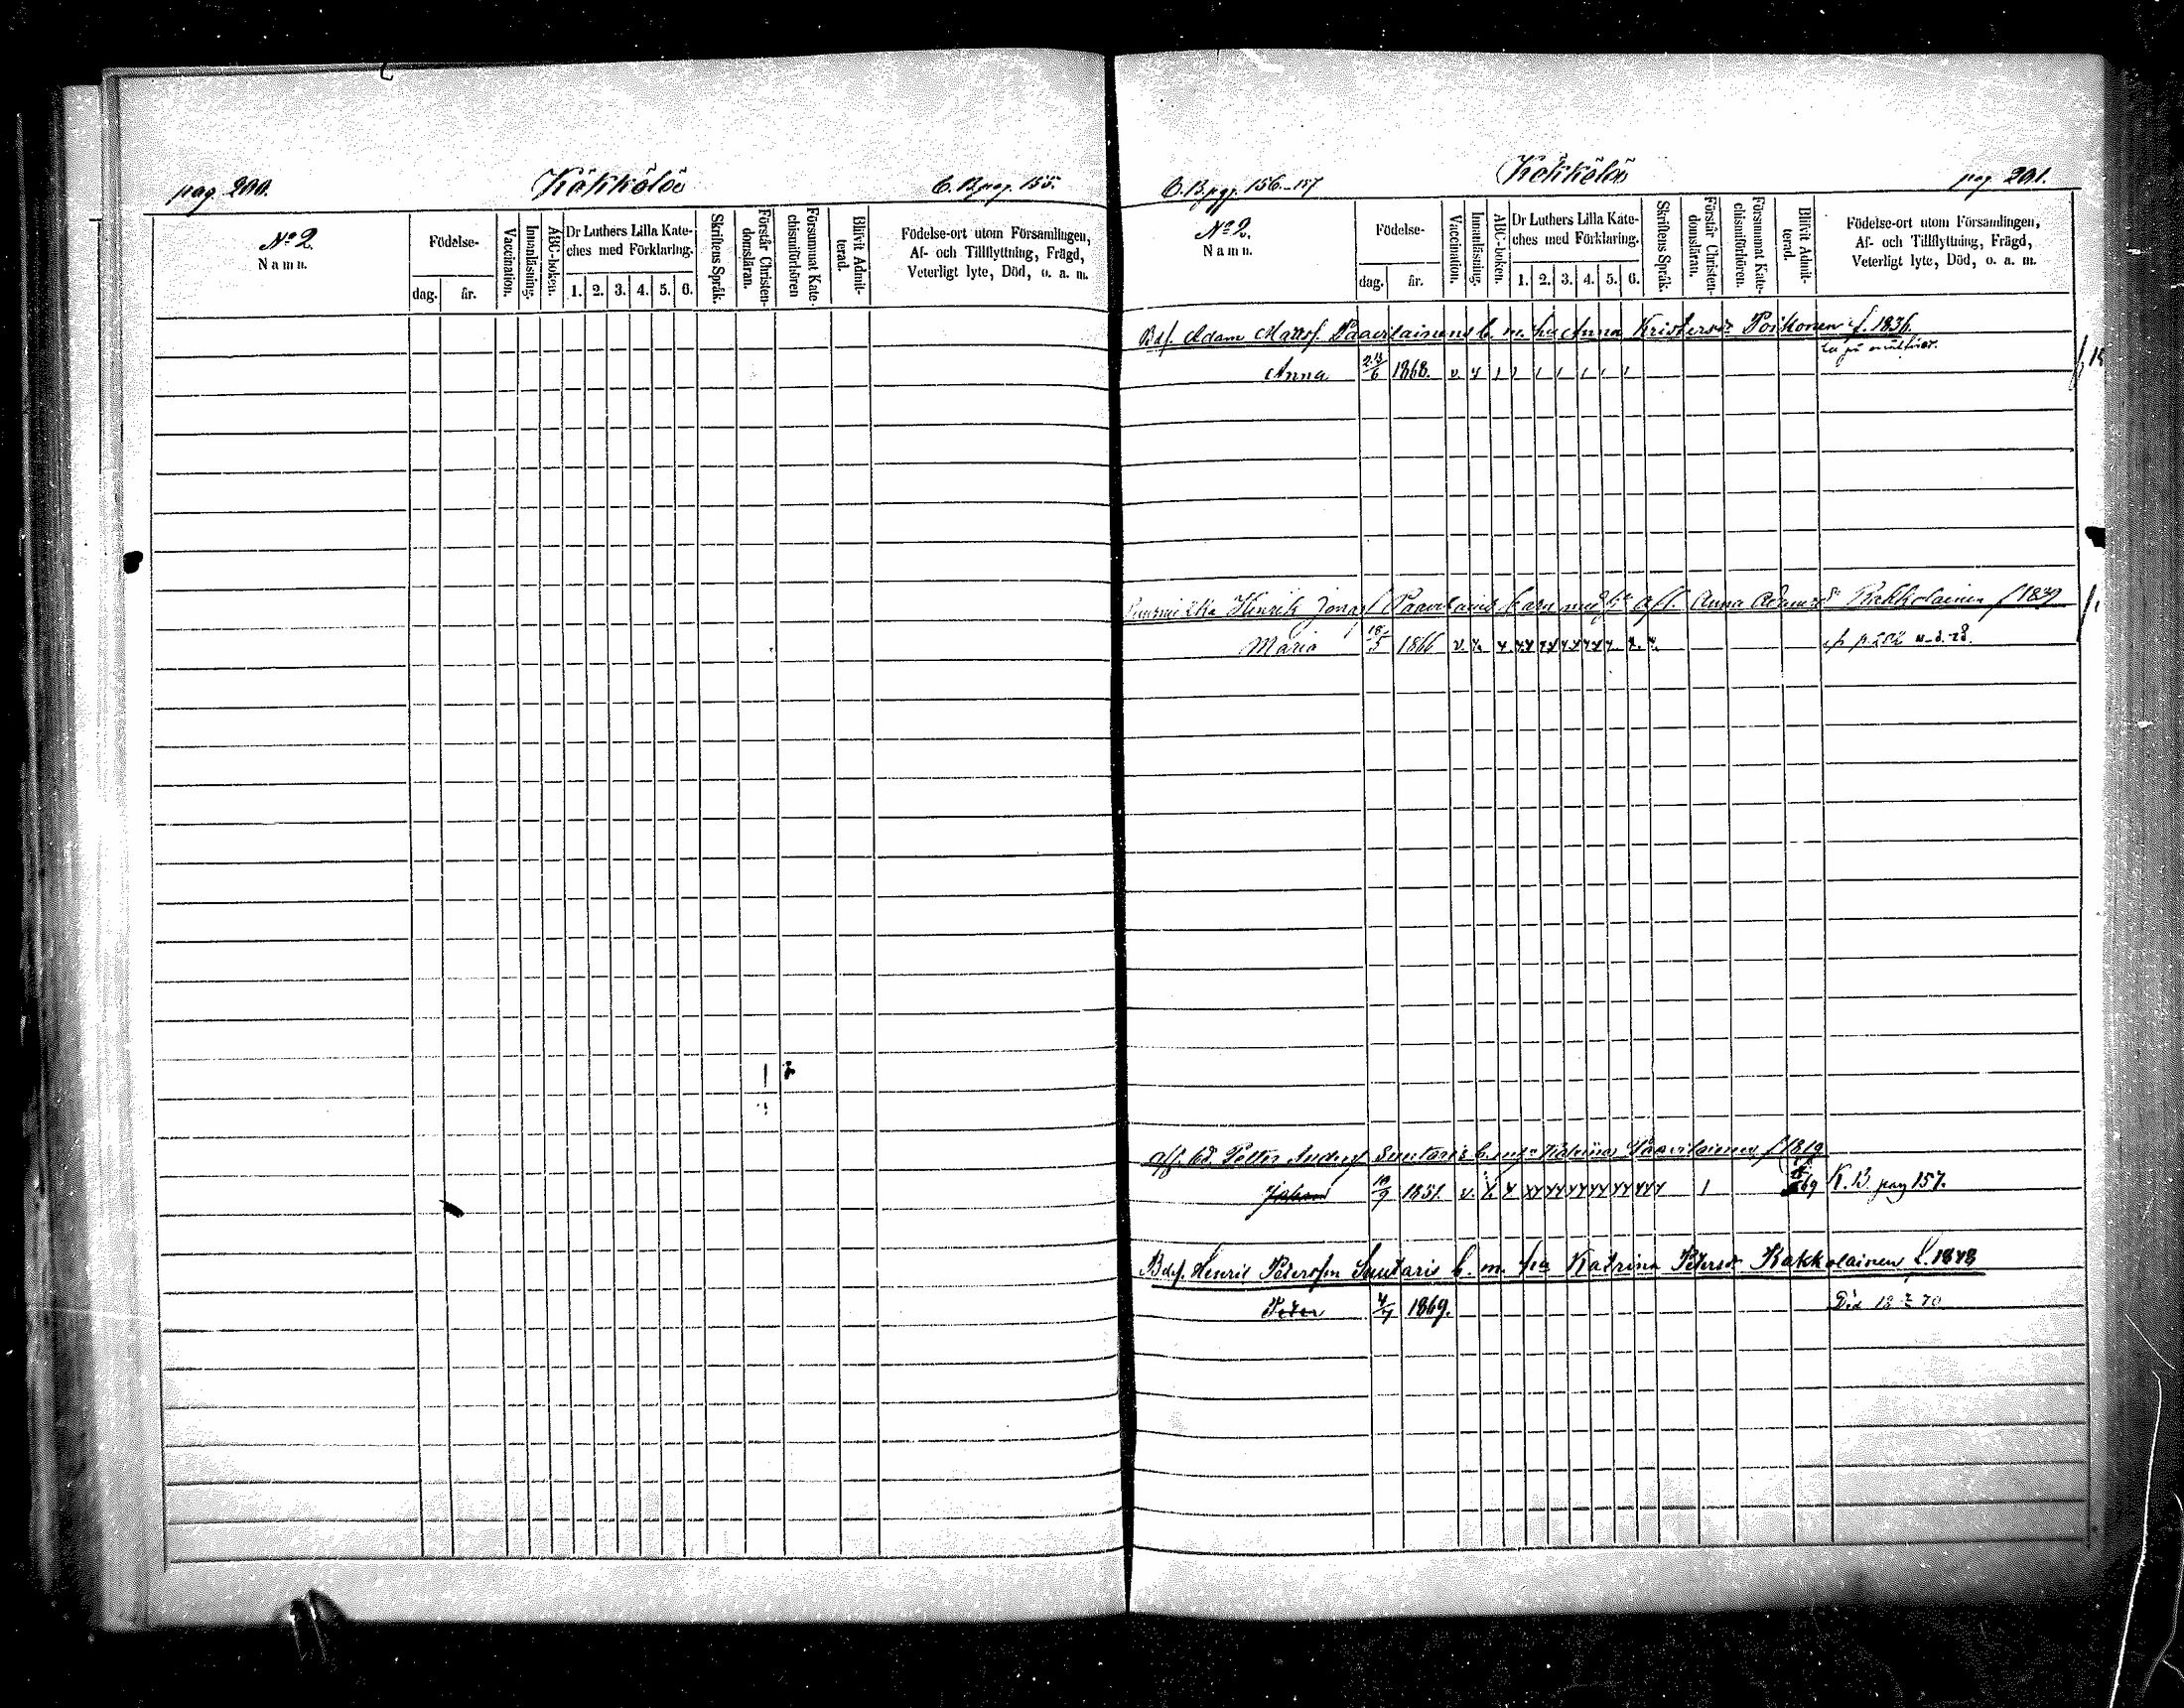 pag. 200.
Käkkölöö
C. B. pag. 155.
No 2.
Namn.
Födelse-
dag. år.
Vaccination.
Innanläsning.
ABC-boken.
Dr Luthers Lilla Kate-
ches med Förklaring.
1. 2. 3. 4. 5. 6.
Skriftens Språk.
Förstår Christen-
domsläran.
Försummat Kate-
chismiförhören
Blifvit Admit-
terad.
Födelse-ort utom Församlingen,
Af- och Tillflyttning, Frägd,
Veterligt lyte, Död, o. a. m.
C. B. pgg. 156-157
Kökkölöö
pag. 201.
No 2.
Namn.
Födelse-
dag. år.
Vaccination.
Innanläsning.
ABC-boken.
Dr Luthers Lilla Kate-
ches med Förklaring.
1. 2. 3. 4. 5. 6.
Skriftens Språk.
Förstår Christen-
domsläran.
Försummat Kate-
chismiförhören.
Blifvit Admit-
terad.
Födelse-ort utom Församlingen,
Af- och Tillflyttning, Frägd,
Veterligt lyte, Död, o. a. m.
Bdf. Adam Mattsf. Paavilainens b. m. hu Anna Kristersdr Poikonen f. 1836.
Anna 23/6 1868. v
Henrik Jonasf Paavilains barn med Anna Adamsdr Kakkolainen f 1839
Maria 18/5 1866 v. p. 202
Petter Andersf Suutaris b. m. Katarina Paavilainen f 1819
Johan 10/9 1851. v. 69 K. B. pag 157.
Bdf. Henrik Petersson Suutaris b. m. hu Katrina Petersdr Kakkolainen f. 1848
Peter 4/7 1869. Död 18 70